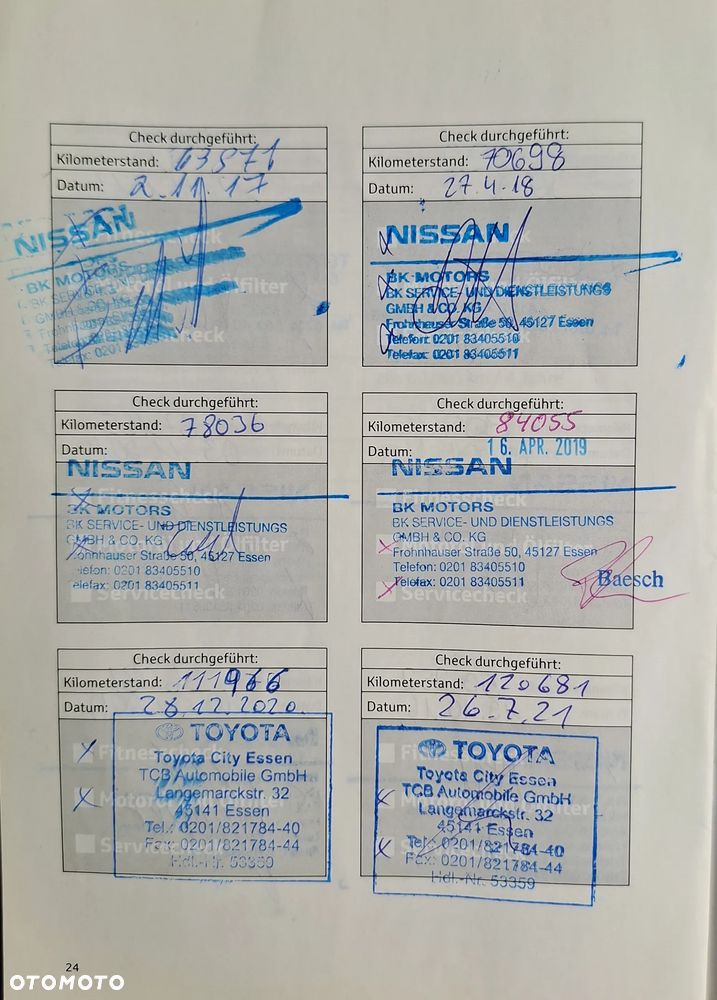 Check durchgeführt:
Kilometerstand: 63871
Datum: 2.11.17
NISSAN
BK MOTORS
BK SERVICE-
GMBH & CO. KG
Frohnhauser
Telefon: 0201
Ölfilter
Servicecheck
Check durchgeführt:
Kilometerstand: 70698
Datum: 27.4.18
NISSAN
BK MOTORS
BK SERVICE- UND DIENSTLEISTUNGS
GMBH & CO. KG
Frohnhauser Straße 50, 45127 Essen
Telefon: 0201 83405510
Telefax: 0201 83405511
Check durchgeführt:
Kilometerstand: 78036
Datum:
NISSAN
Fitnesscheck
BK MOTORS
BK SERVICE- UND DIENSTLEISTUNGS
GMBH & CO. KG
Frohnhauser Straße 50, 45127 Essen
Telefon: 0201 83405510
Telefax: 0201 83405511
Servicecheck
Check durchgeführt:
Kilometerstand: 84055
Datum: 16. APR. 2019
NISSAN
Fitnesscheck
BK MOTORS
BK SERVICE- UND DIENSTLEISTUNGS
GMBH & CO. KG
Frohnhauser Straße 50, 45127 Essen
Telefon: 0201 83405510
Telefax: 0201 83405511
Baesch
Servicecheck
Check durchgeführt:
Kilometerstand: 111966
Datum: 28.12.2020.
TOYOTA
Fitnesscheck
Toyota City Essen
TCB Automobile GmbH
Langemarckstr. 32
45141 Essen
Tel.: 0201/821784-40
Fax: 0201/821784-44
Servicecheck
Hdl.-Nr. 53359
Check durchgeführt:
Kilometerstand: 120681
Datum: 26.7.21
TOYOTA
Toyota City Essen
TCB Automobile GmbH
Langemarckstr. 32
45141 Essen
Tel.: 0201/821784-40
Fax: 0201/821784-44
Hdl.-Nr. 53359
24
OTOMOTO